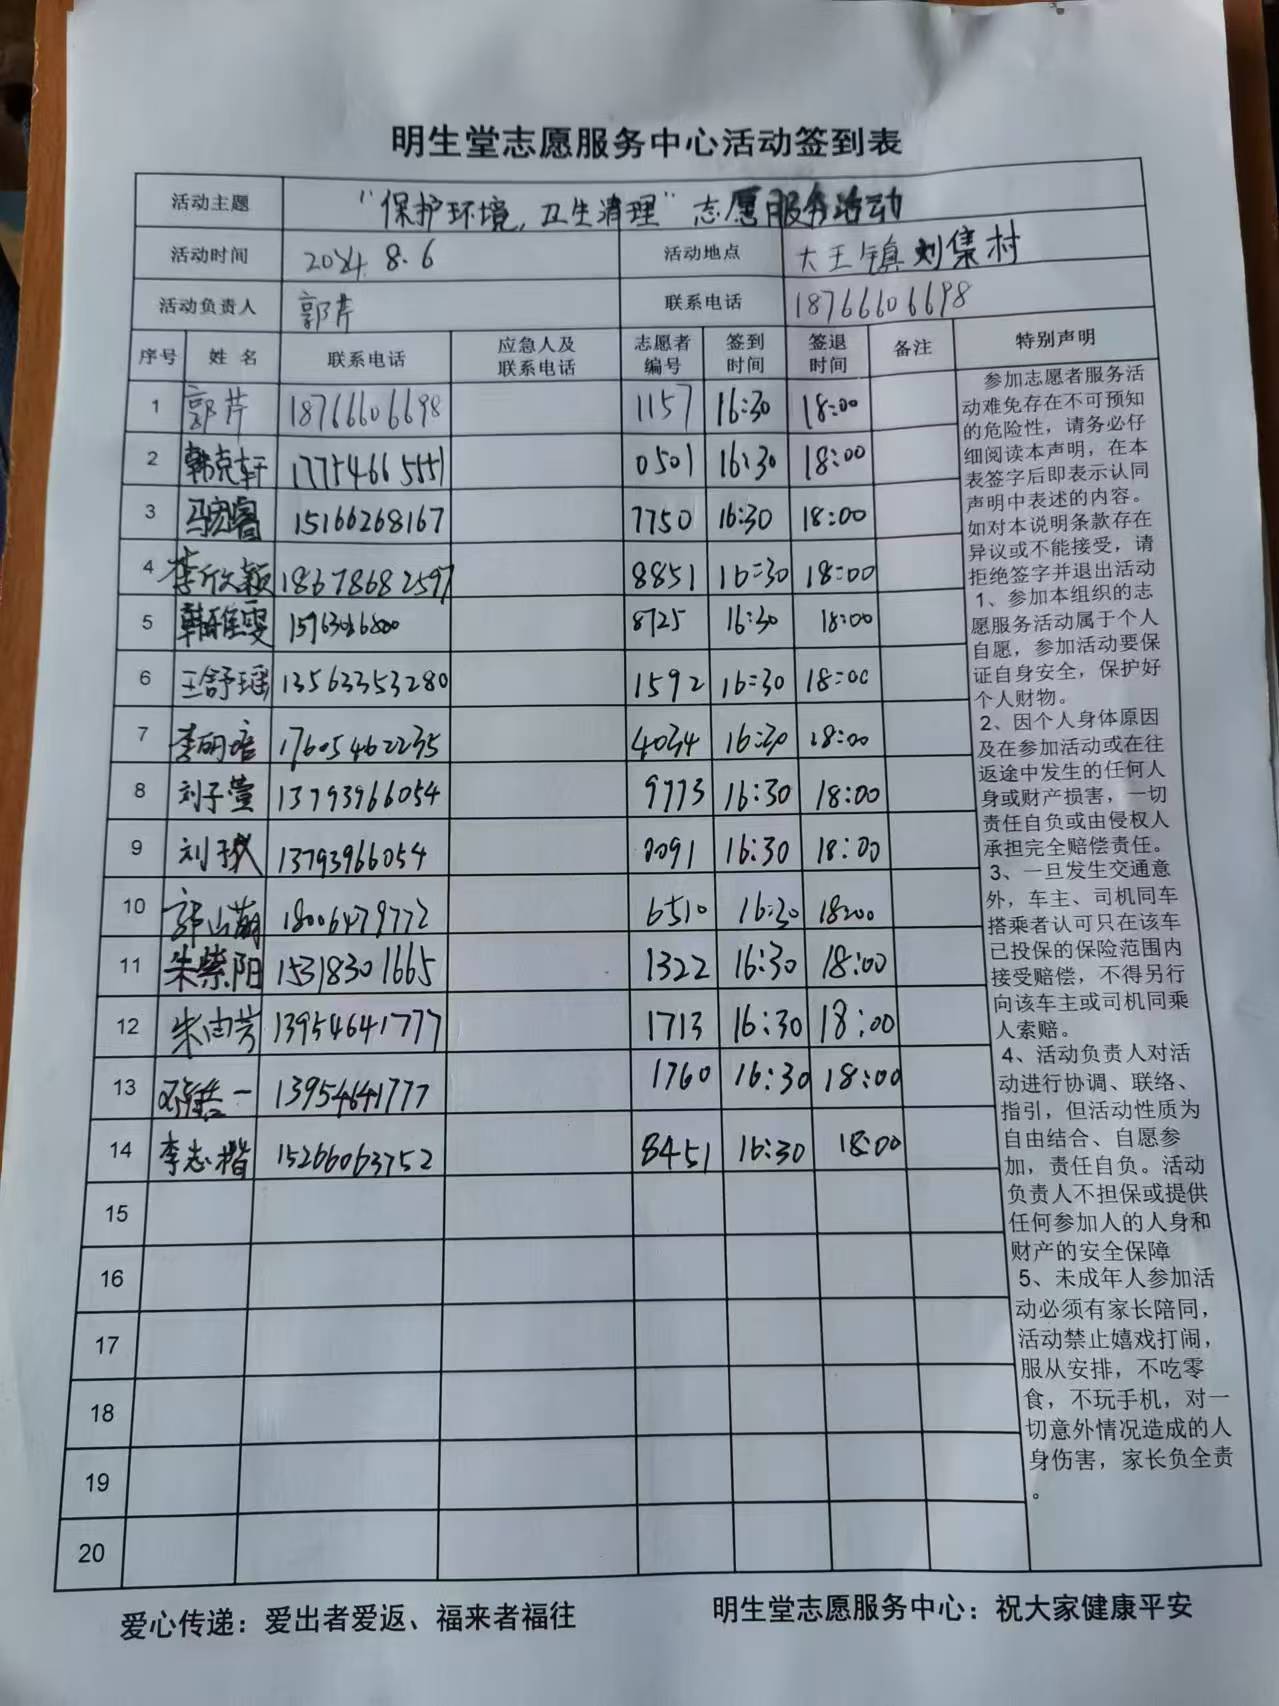 明生堂志愿服务中心活动签到表
活动主题 “保护环境,卫生清理”志愿服务活动
活动时间 2024.8.6 活动地点 大王镇刘集村
活动负责人 郭芹 联系电话 18766606698
序号 姓名 联系电话 应急人及联系电话 志愿者编号 签到时间 签退时间 备注 特别声明
1 郭芹 18766606698 1157 16:30 18:00
2 韩克轩 17754665551 0501 16:30 18:00
3 马宏睿 15166268167 7750 16:30 18:00
4 李欣颖 18678682597 8851 16:30 18:00
5 韩雅雯 8725 16:30 18:00
6 王舒瑶 13563353280 1592 16:30 18:00
7 李明培 17605462235 4034 16:30 18:00
8 刘子萱 13793966054 9773 16:30 18:00
9 刘子 13793966054 0091 16:30 18:00
10 18006479772 6510 16:30 18:00
11 朱紫阳 15318301665 1322 16:30 18:00
12 朱 芳 13954641777 1713 16:30 18:00
13 一 13954641777 1760 16:30 18:00
14 李志楷 15266063752 8451 16:30 18:00
15
16
17
18
19
20
参加志愿者服务活
动难免存在不可预知
的危险性，请务必仔
细阅读本声明，在本
表签字后即表示认同
声明中表述的内容。
如对本说明条款存在
异议或不能接受，请
拒绝签字并退出活动
1、参加本组织的志
愿服务活动属于个人
自愿，参加活动要保
证自身安全，保护好
个人财物。
2、因个人身体原因
及在参加活动或在往
返途中发生的任何人
身或财产损害，一切
责任自负或由侵权人
承担完全赔偿责任。
3、一旦发生交通意
外，车主、司机同车
搭乘者认可只在该车
已投保的保险范围内
接受赔偿，不得另行
向该车主或司机同乘
人索赔。
4、活动负责人对活
动进行协调、联络、
指引，但活动性质为
自由结合、自愿参
加，责任自负。活动
负责人不担保或提供
任何参加人的人身和
财产的安全保障
5、未成年人参加活
动必须有家长陪同，
活动禁止嬉戏打闹，
服从安排，不吃零
食，不玩手机，对一
切意外情况造成的人
身伤害，家长负全责
。
爱心传递：爱出者爱返、福来者福往 明生堂志愿服务中心：祝大家健康平安